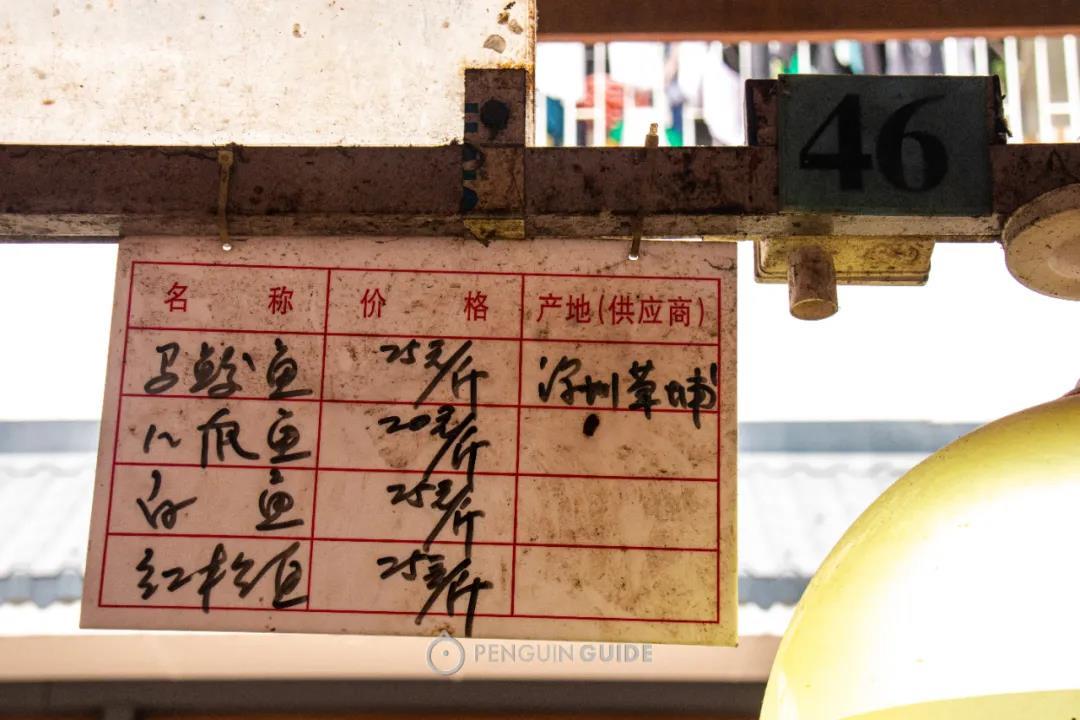 46
名称 价格 产地(供应商)
马鲛鱼 25元/斤 深圳草埔
鱼 20元/斤
白鱼 25元/斤
红杉鱼 25元/斤
PENGUIN GUIDE